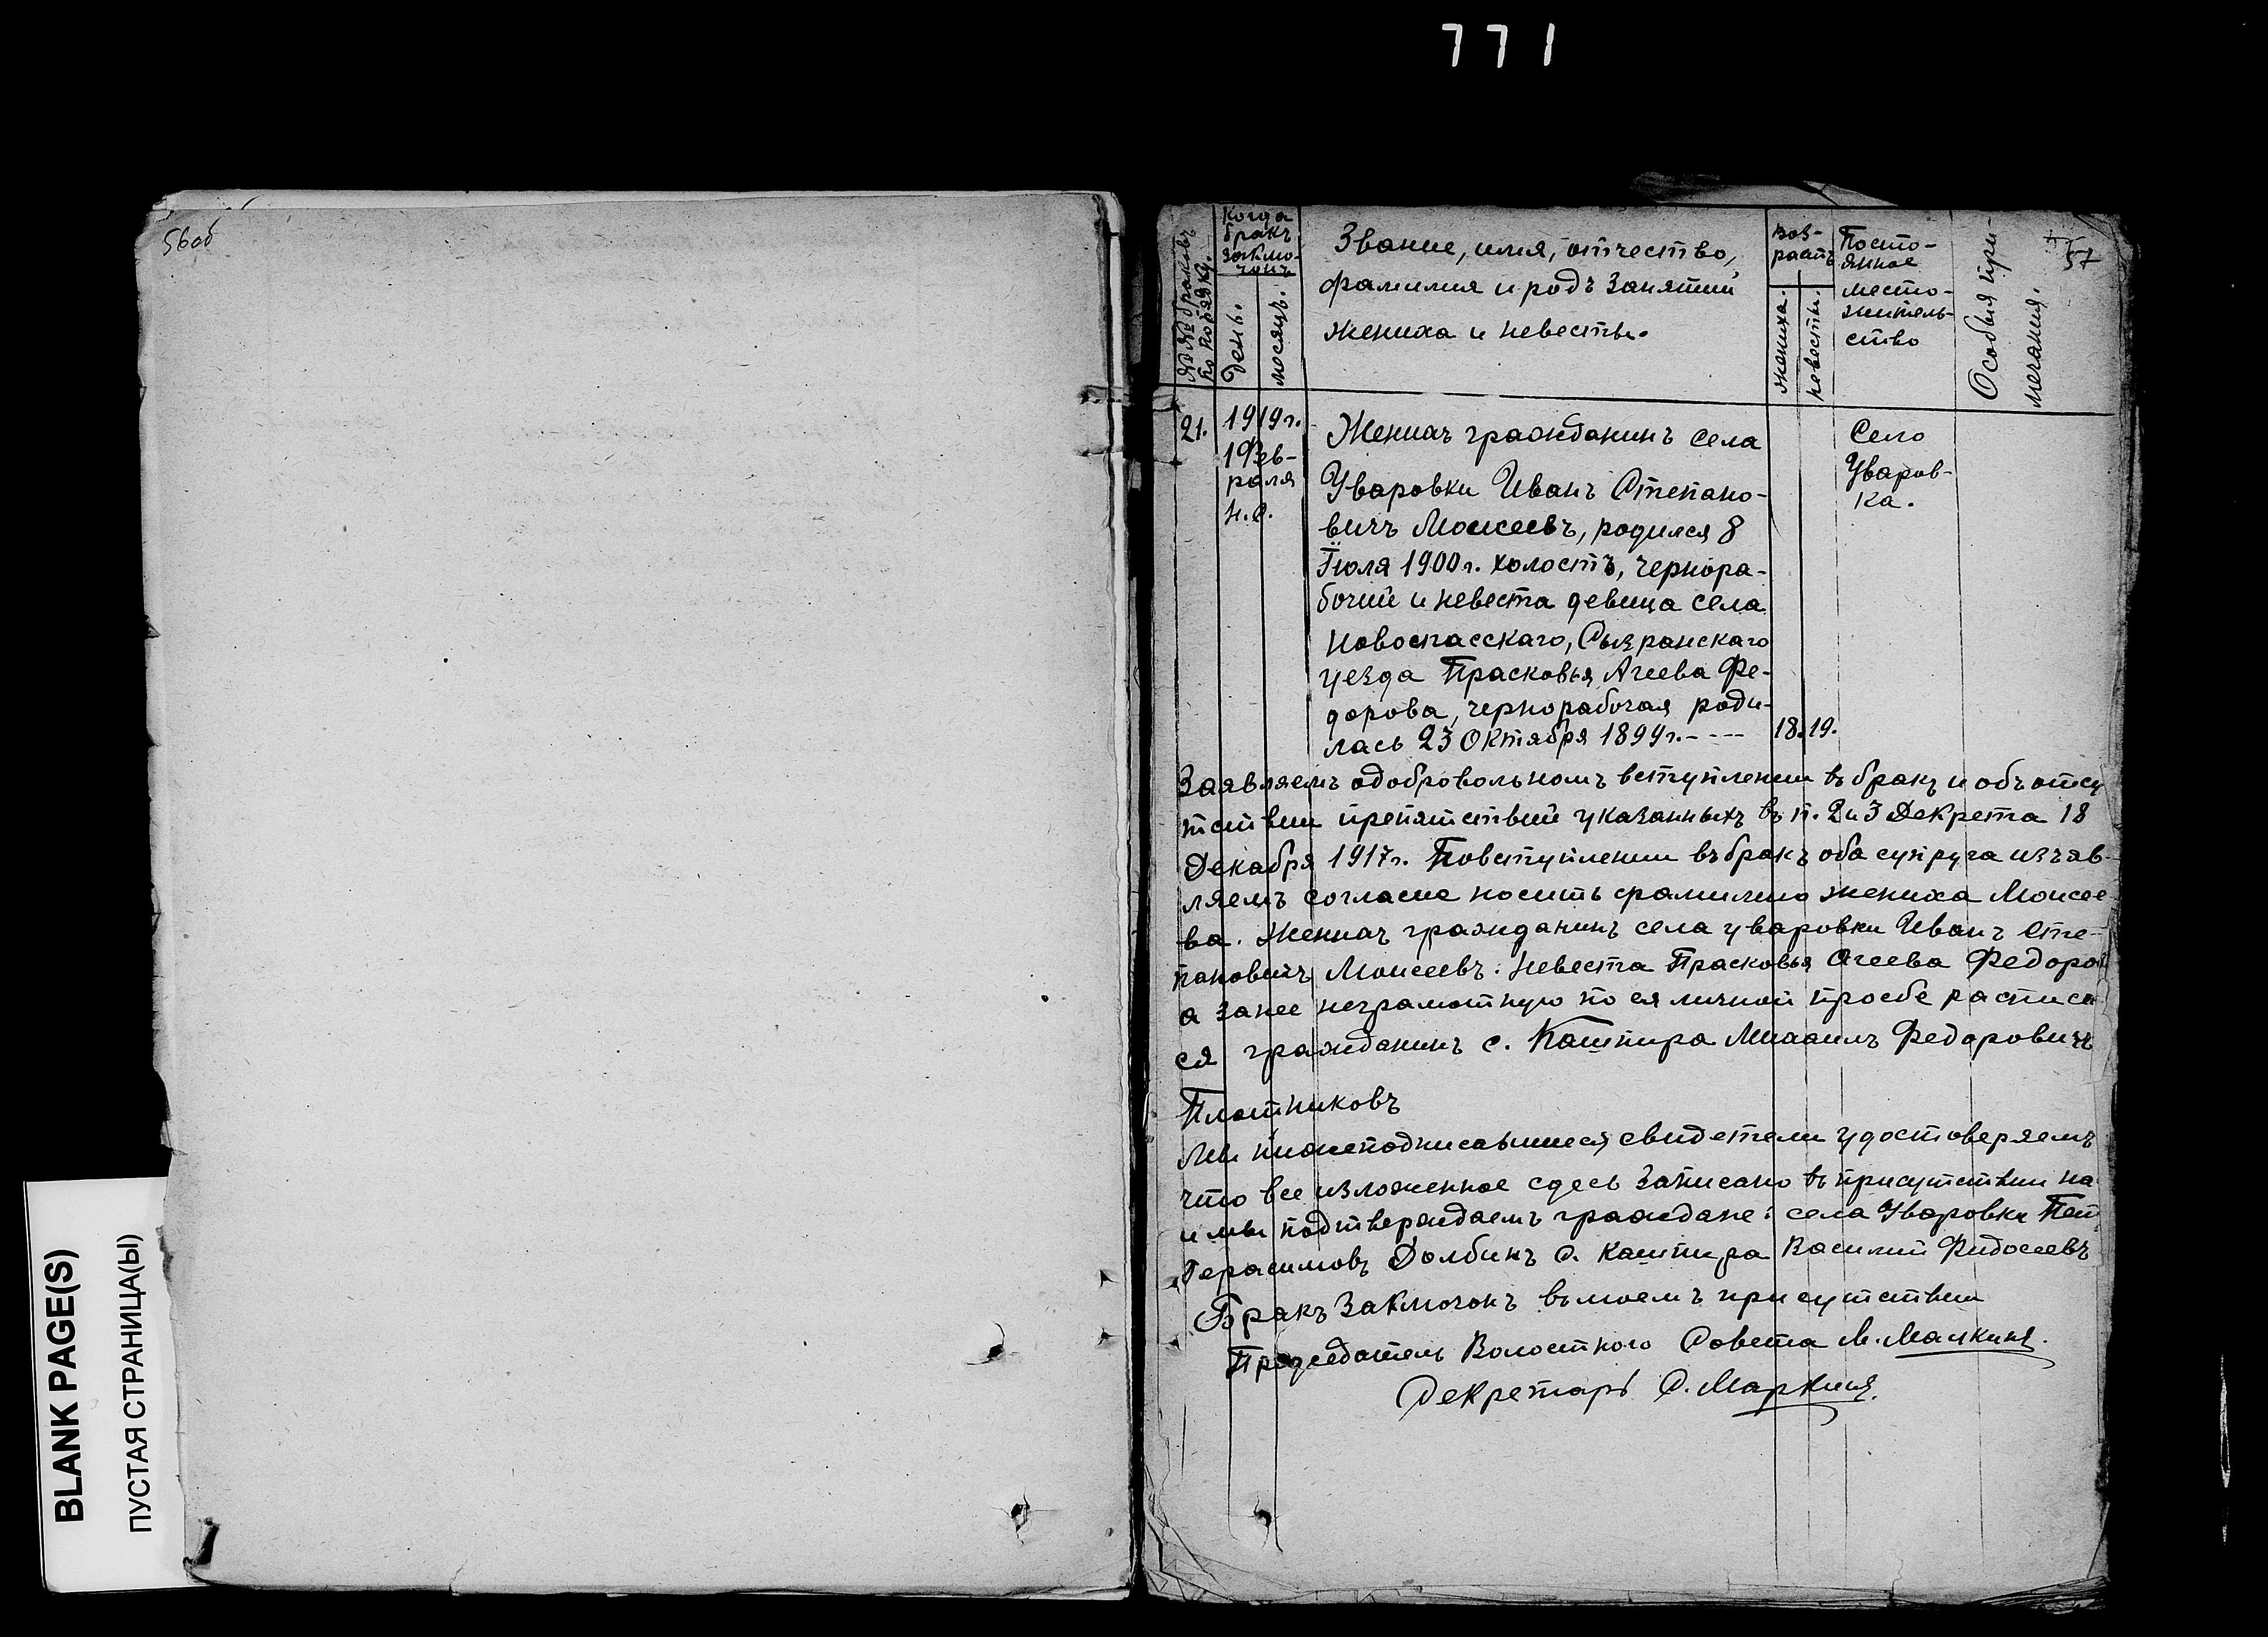 771
56об
BLANK PAGE(S)
ПУСТАЯ СТРАНИЦА(Ы)
57
№№ браковъ
по порядку.
Когда
бракъ
заклю-
чонъ
День.
месяцъ.
Звание, имя, отчество,
фамилия и родъ занятий
жениха и невесты.
Воз-
растъ
жениха.
невесты.
Посто-
янное
место-
житель-
ство
Особыя при-
мечания.
21.
1919г.
1 Фев-
раля
н.с.
Женихъ гражданинъ села
Уваровки Иванъ Степано-
вичъ Моисеевъ, родился 8
Iюля 1900г. холостъ, чернора-
бочий и невеста девица села
Новоспасскаго, Сызранскаго
уезда Прасковья Агеева Фе-
дорова, чернорабочая роди-
лась 23 Октября 1899г. - - - -
18. 19.
Село
Уваров-
ка.
Заявляемъ одобровольномъ вступлении въ бракъ и объ отсу
тствии препятствий указанныхъ въ п. 2 и 3 Декрета 18
Декабря 1917г. Повступлении въ бракъ оба супруга изъяв-
ляемъ согласие носить фамилию жениха Моисее
ва. Женихъ гражданинъ села Уваровки Иванъ Сте-
пановичъ Моисеевъ. Невеста Прасковья Агеева Федоров
а занее неграмотную по ея личной просбе расписал
ся гражданинъ с. Кашпира Михаилъ Федоровичъ
Плотниковъ
Мы нижеподписавшиеся свидетели удостоверяемъ
что все изложенное сдесь записано въ присутствии на
и мы подтверждаемъ граждане: села Уваровки Пет
Герасимовъ Долбинъ с. Кашпира Василий Фидосеевъ
Бракъ Заключонъ въ моемъ присутствии
Председатель Волостного Совета М. Малкинъ.
Секретарь С. Маркинъ.